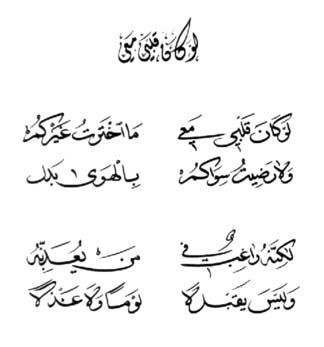 لو كان قلبي معي
لَوْ كَانَ قَلْبِي مَعِي مَا اخْتَرْتُ غَيْرَكُمُ
وَلَا رَضِيتُ سِوَاكُمُ بِالْهَوَى بَدَل
لَكِنَّهُ رَاغِبٌ فِي مَنْ يُعَذِّبُهُ
وَلَيْسَ يَقْبَلُ لَا لَوْمًا وَلَا عَذْلَا